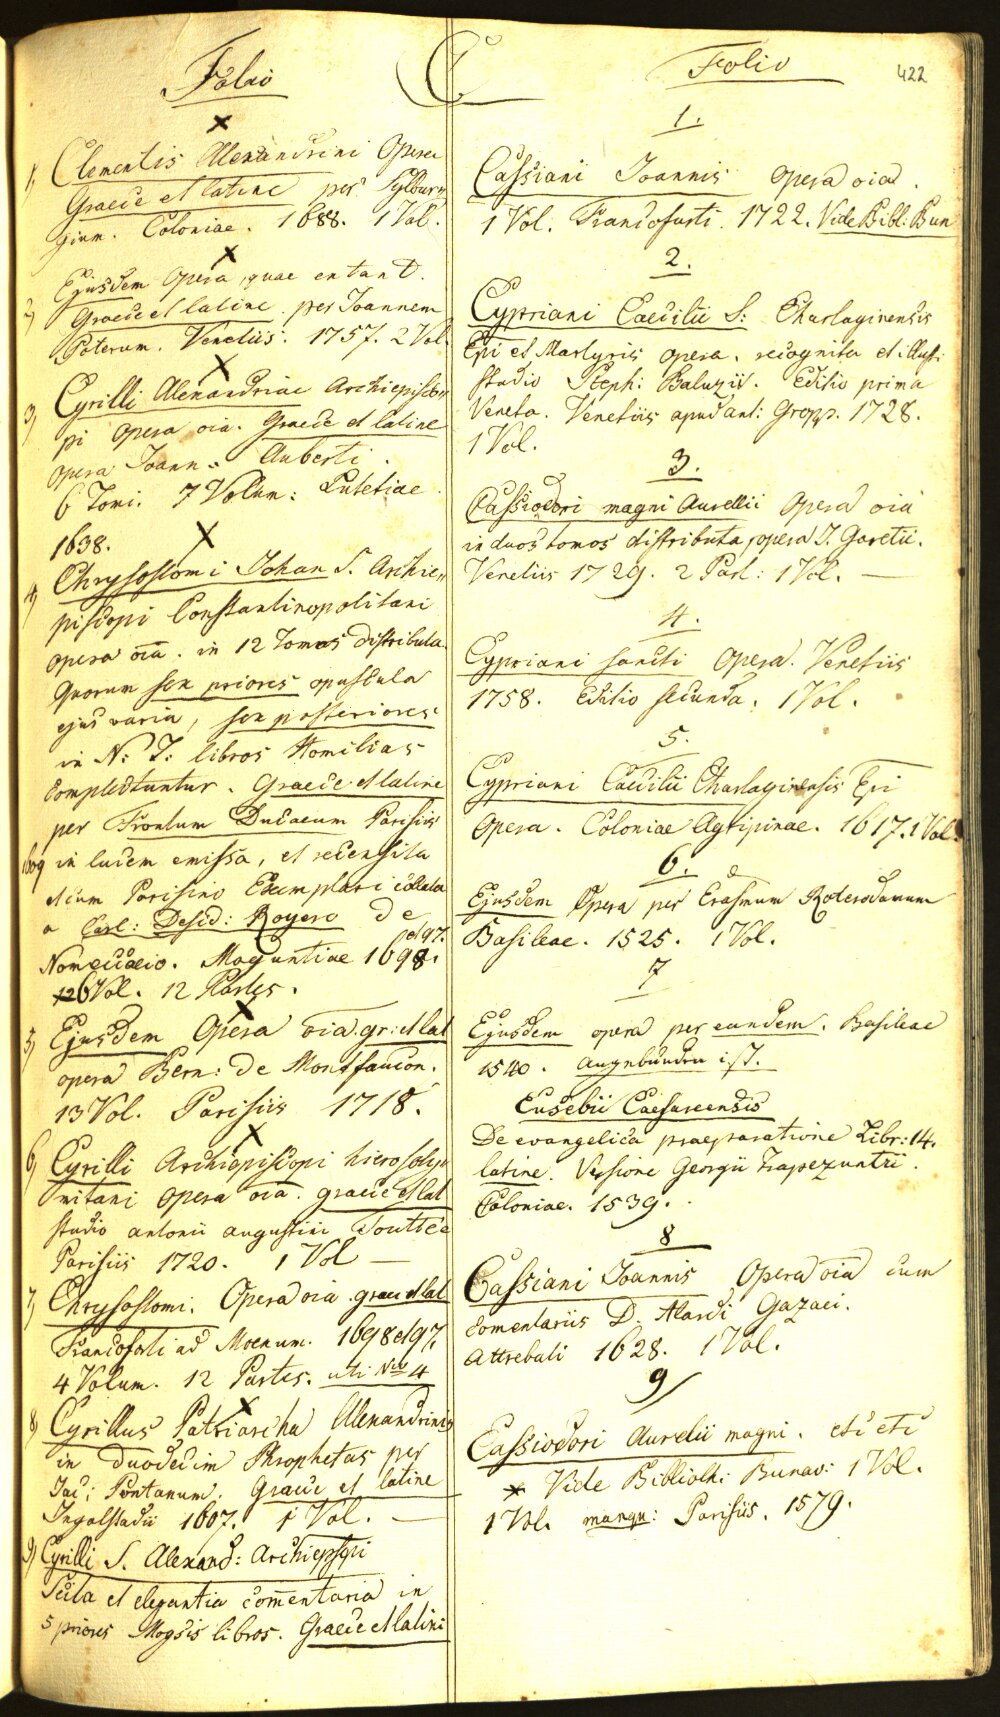 Folio
C
Folio
422
1, Clementis Alexandrini Opera
Graece et latine per Sylbur„
gium. Coloniae. 1688. 1 Vol.
2, Ejusdem Opera, quae extant.
Graece et latine per Joannem
Poterum. Venetiis. 1757. 2 Vol.
3, Cyrilli Alexandriae Archiepisco„
pi opera oia. Graece et latine
opera Joann. Auberti.
6 Tomi. 7 Volum: Lutetiae
1638.
4, Chrysostomi Johan S. Archie„
piscopi Constantinopolitani
opera oia. in 12 Tomos distributa
Quorum sex priores opuscula
ejus varia, sex posteriores
in N: T: libros Homilias
complectuntur. Graece et latine
per Frontum Ducaeum Parisiis
1609 in lucem emissa, et recensita
et cum Parisino Exemplari collata
a Carl: Desid: Royero de
Nomeccaeio. Moguntiae 1698. et 97.
6 Vol. 12 Partes.
5, Ejusdem Opera oia gr: et lat
opera Bern: de Montfaucon.
13 Vol. Parisiis 1718.
6, Cyrilli Archiepiscopi hierosoly„
mitani opera oia. graece et lat
studio antonii augustini Touttée
Parisiis 1720. 1 Vol —
7, Chrysostomi. Opera oia graec et lat
Francoforti ad Moenum. 1698 et 97.
4 Volum. 12 Partes. uti Nro 4
8, Cyrillus Patriarcha Alexandrinus
in duodecim Phrophetas per
Jac: Pontanum. Graece et latine
Ingolstadii 1607. 1 Vol. —
9, Cyrilli S. Alexand: Archiepscpi
Scita et elegantia comentaria in
5 priores Moysis libros. Graece et latine
1.
Cassiani Joannis opera oia.
1 Vol. Francofurti. 1722. Vide Bibl: Bun
2.
Cypriani Caecilii S: Charlaginensis
Epi et Martyris opera. recognita et illust:
studio Steph: Baluzii. Editio prima
Veneta. Venetiis apud ant: Gropp. 1728.
1 Vol.
3.
Cassiodori magni Aurellii Opera oia
in duos tomos distributa, opera J. Garetii.
Venetiis 1729. 2 Part: 1 Vol. —
4.
Cypriani sancti Opera. Venetiis
1758. Editio secunda. 1 Vol.
5.
Cypriani Caecilii Charlaginensis Epi
Opera. Coloniae Agripinae. 1617. 1 Vol.
6.
Ejusdem Opera per Erasmum Roterodamum
Basileae. 1525. 1 Vol.
7
Ejusdem opera per eundem. Basileae
1540. angebunden ist.
Eusebii Caesareensis
De evangelica praeparatione Libr: 14.
latine. Versione Georgii Trapezuntii.
Coloniae. 1539.
8
Cassiani Joannis Opera oia cum
comentariis D. Alardi Gazaei.
Attrebati 1628. 1 Vol.
9
Cassiodori Aurelii magni. etc etc
Vide Biblioth: Bunav: 1 Vol.
1 Vol. manqu: Parisiis. 1579.